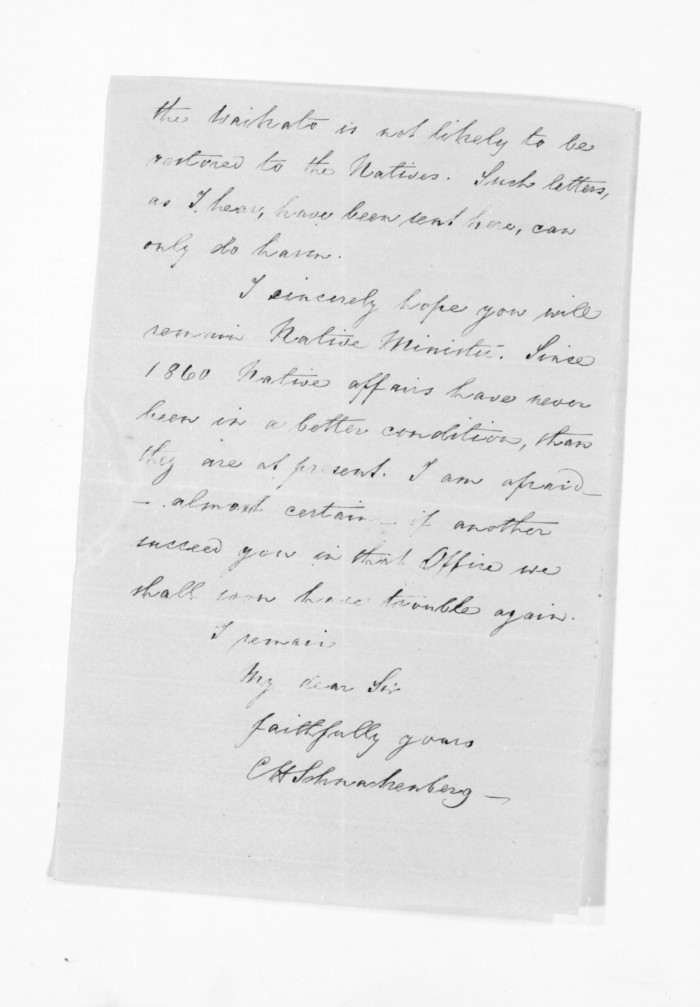 the Waikato is not likely to be
restored to the Natives. Such letters,
as I hear, have been sent here, can
only do harm.
I sincerely hope you will
remain Native Minister. Since
1860 Native affairs have never
been in a better condition, than
they are at present. I am afraid —
— almost certain — if another
succeed you in that Office we
shall soon have trouble again.
I remain
My dear Sir
faithfully yours
C H Schnackenberg —